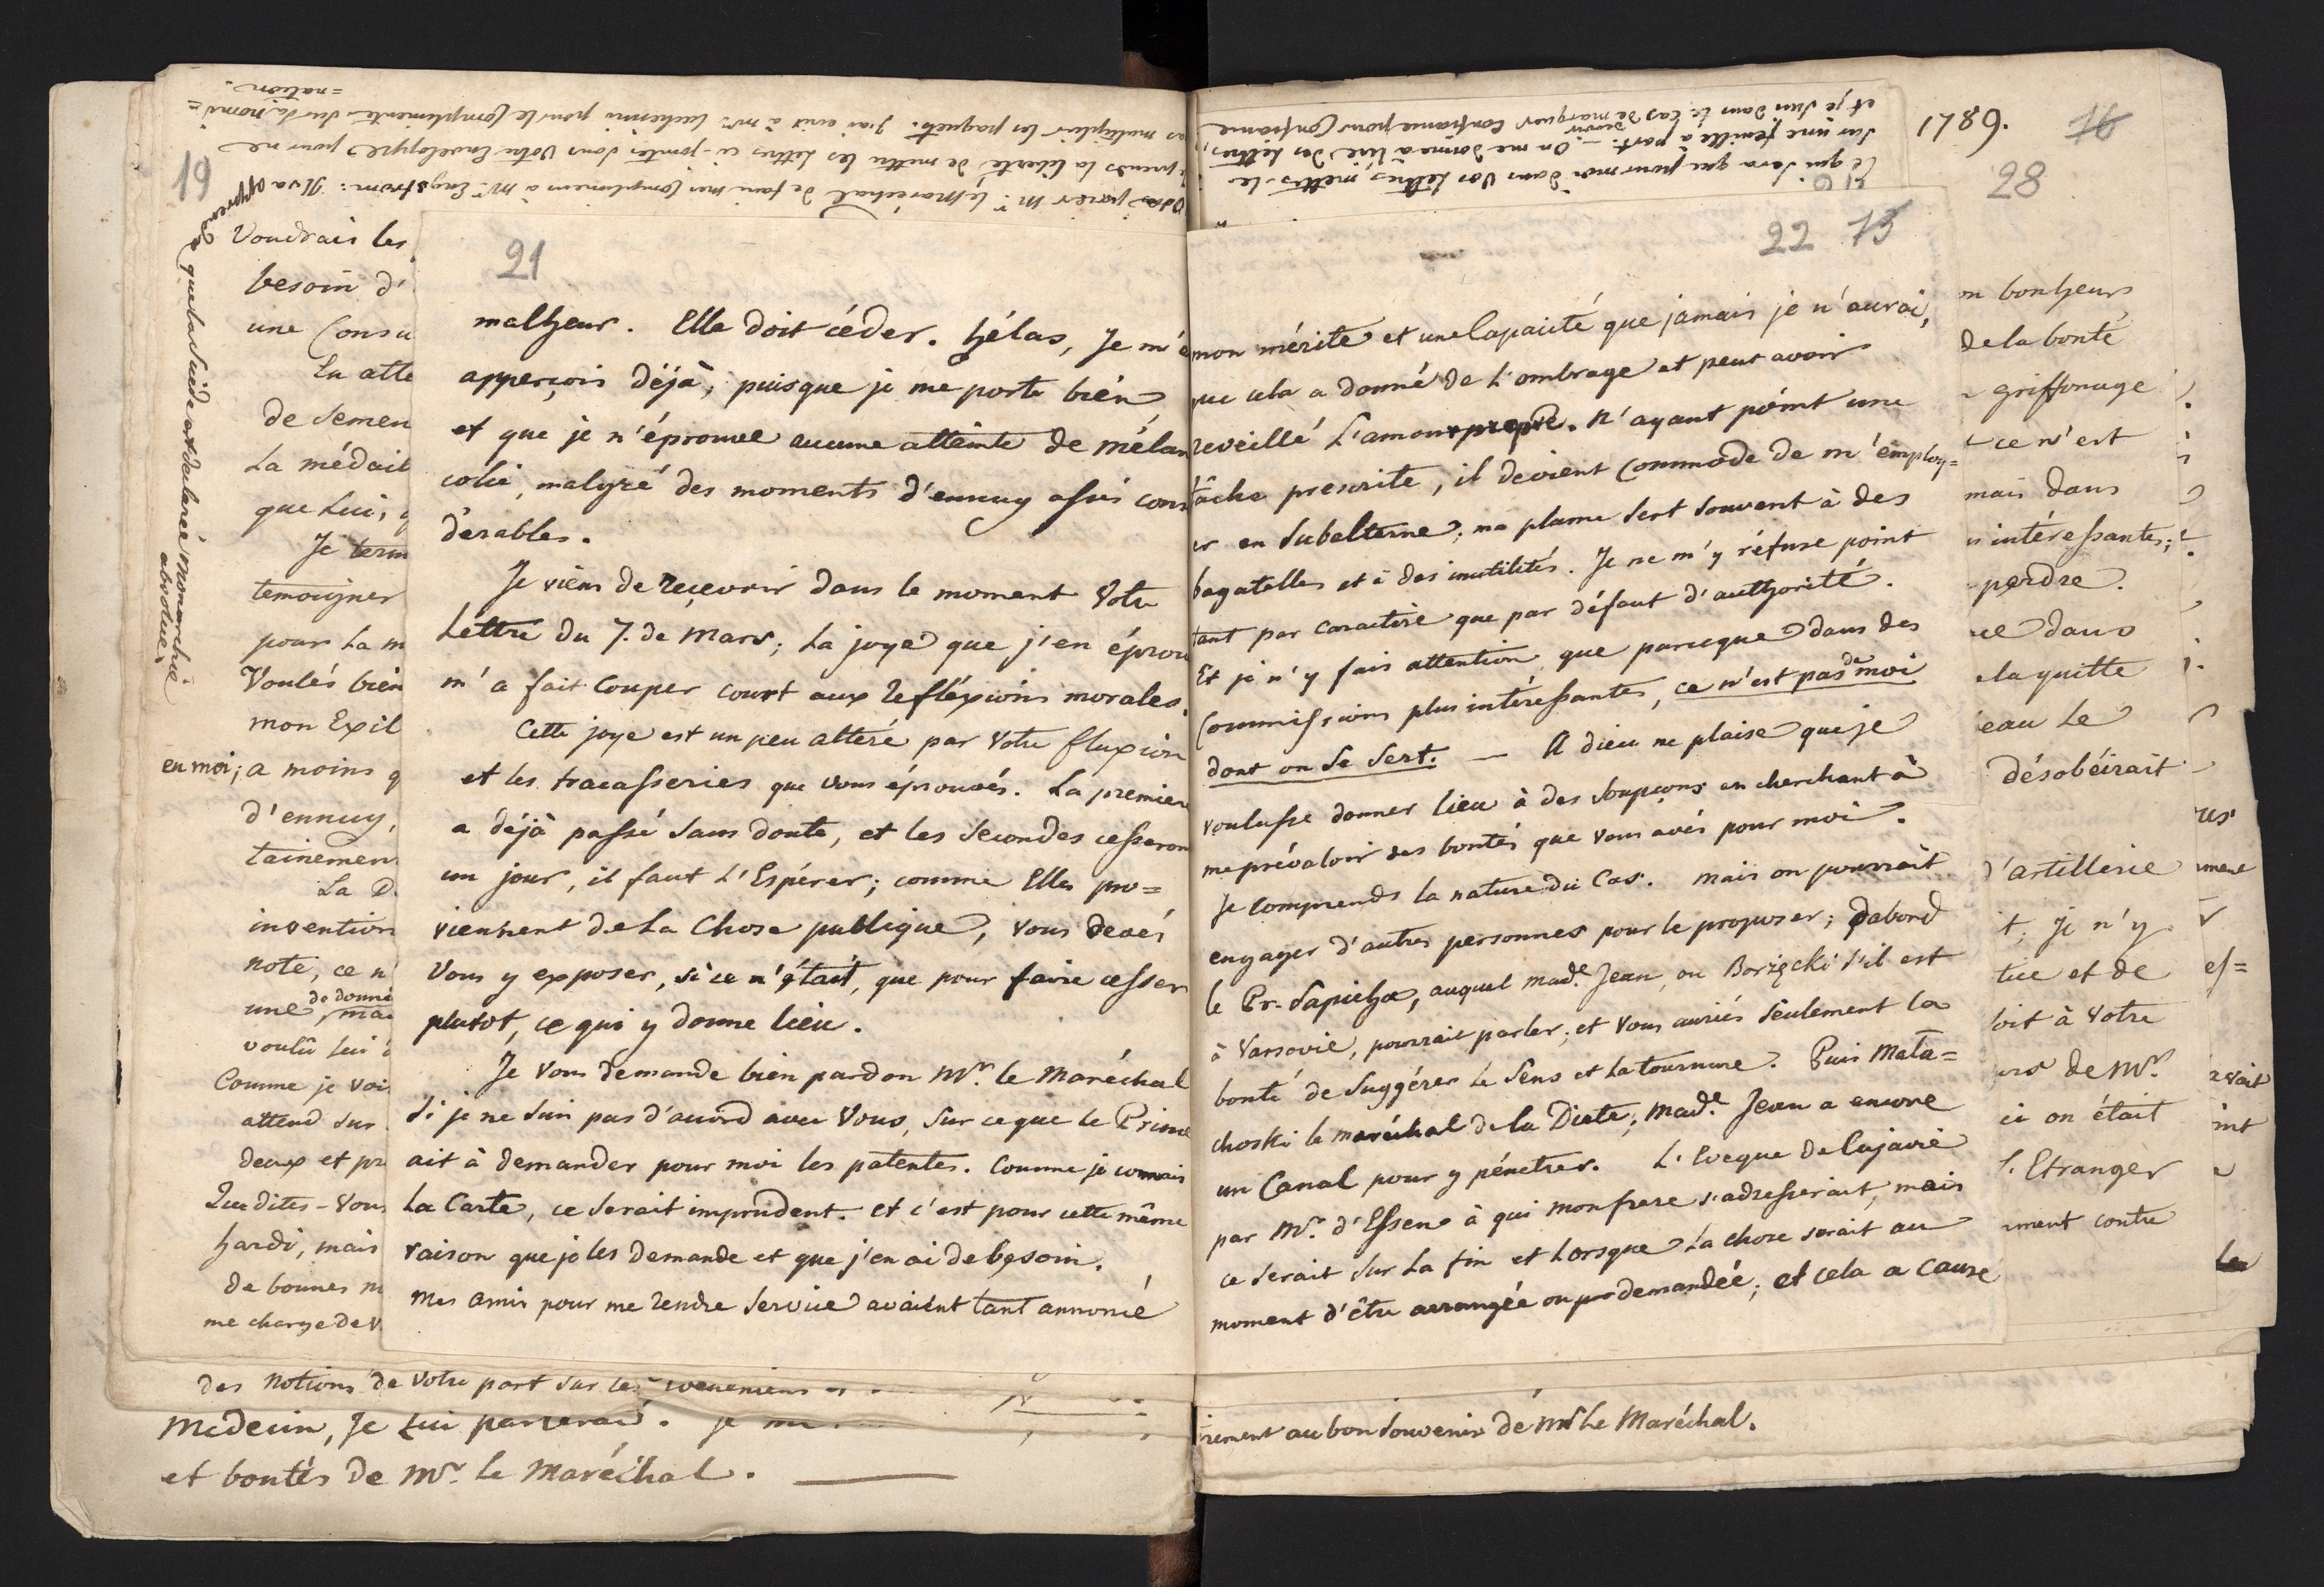 =nation.
pas multiplier les paquets. J'ai écrit à mr. Luchesini pour le Complimenter sur sa nomi=
prends la liberté de mettre les Lettres ci-jointes sous Votre Enveloppe pour ne
Oserais prier Mr. le Maréchal de faire mes Complimens à Mr. Engeström: Il va apprendre
que la Suède est declarée Monarchie
absolue.
19
Voudrais les
besoin d'
une Consu
La atte
de Semen
La médail
que Lui, q
Je term
temoigner
pour La m
Voulés bien
mon Exil
en moi; a moins q
d'ennuy,
tainemen
La D
invention
note, ce n'
de donné
une, mai
voulû lui
Comme je vois
attend sur
deux et pr
Que dites-vous
hardi, mais
de bonnes n
me charge de v
des Notions de votre part sur les evenemens
Medecin, Je lui parlerai. je
et bontés de Mr. le Maréchal.
21
malheur. Elle doit céder. hélas, Je m'e
apperçois déjà, puisque je me porte bién
et que je n'éprouve aucune atteinte de mélan
colie, malgré des moments d'ennuy assés consi
dérables.
Je viens de reçevoir dans le moment Votre
Lettre du 7. de Mars; La joye que j'en éprou
m'a fait couper court aux refléxions morales.
Cette joye est un peu altéré par Votre fluxion
et les tracasseries que vous éprouvés. La premiere
a déjà passé sans doute, et les Secondes cesseron
un jour, il faut l'Espérer; comme Elles pro=
viennent de La Chose publique, vous devés
Vous y exposer, si ce n'était, que pour faire cesser
plutôt, ce qui y donne lieu.
Je vous demande bien pardon Mr. le Maréchal
Si je ne suis pas d'accord avec Vous, sur ce que le Prince
ait à demander pour moi les patentes. Comme je connais
La Carte, ce serait imprudent. et c'est pour cette même
raison que je les demande et que j'en ai de besoin.
Mes amis pour me rendre service avaient tant annoncé
Ce qui sera que pour moi dans Vos Lettres, mettés-le
sur une feuille à part. On me donne à lire des Lettres,
devoir
et je suis dans le cas de marquer Confiance pour Confiance
22 15
mon mérite et une Capacité que jamais je n'aurai,
que cela a donné de L'ombrage et peut avoir
reveillé L'amour propre. N'ayant point une
tâche prescrite, il devient commode de m'employ=
er en Subalterne; ma plume sert souvent à des
bagatelles et à des inutilités. Je ne m'y réfuse point
tant par caractère que par défaut d'authorité.
Et je n'y fais attention que parceque dans des
Commissions plus intéressantes, ce n'est pas de moi
dont on se sert. — A dieu ne plaise que je
voulusse donner lieu à des soupçons en cherchant à
me prévaloir des bontés que vous avés pour moi.
Je comprends la nature du Cas. Mais on pourrait
engager d'autres personnes pour le proposer; d'abord
le Pr. Sapieha, auquel Made. Jean, ou Borzęcki s'il est
à Varsovie, pourrait parler, et vous auriés seulement la
bonté de suggérer le Sens et la tournure. Puis Mała=
choski le maréchal de la Diete; Made. Jean a encore
un Canal pour y pénetrer. L'Eveque de Cujavie
par Mr. d'Essen à qui mon frere s'adresserait, mais
ce serait sur La fin et Lorsque La chose serait au
moment d'être arrangée ou demandée; et cela a cause
irement au bon souvenir de Mr. Le Maréchal.
1789. 16
28
on bonheur
de la bonté
griffonage
ce n'est
mais dans
s intéressantes;
perdre.
ue dans
la quitte
eau Le
désobéirait
d'artillerie
it, je n'y
tice et de
soit à Votre
urs de Mr.
ci on était
l'Etranger
ment contre
res
ument
es=
avait
int
les